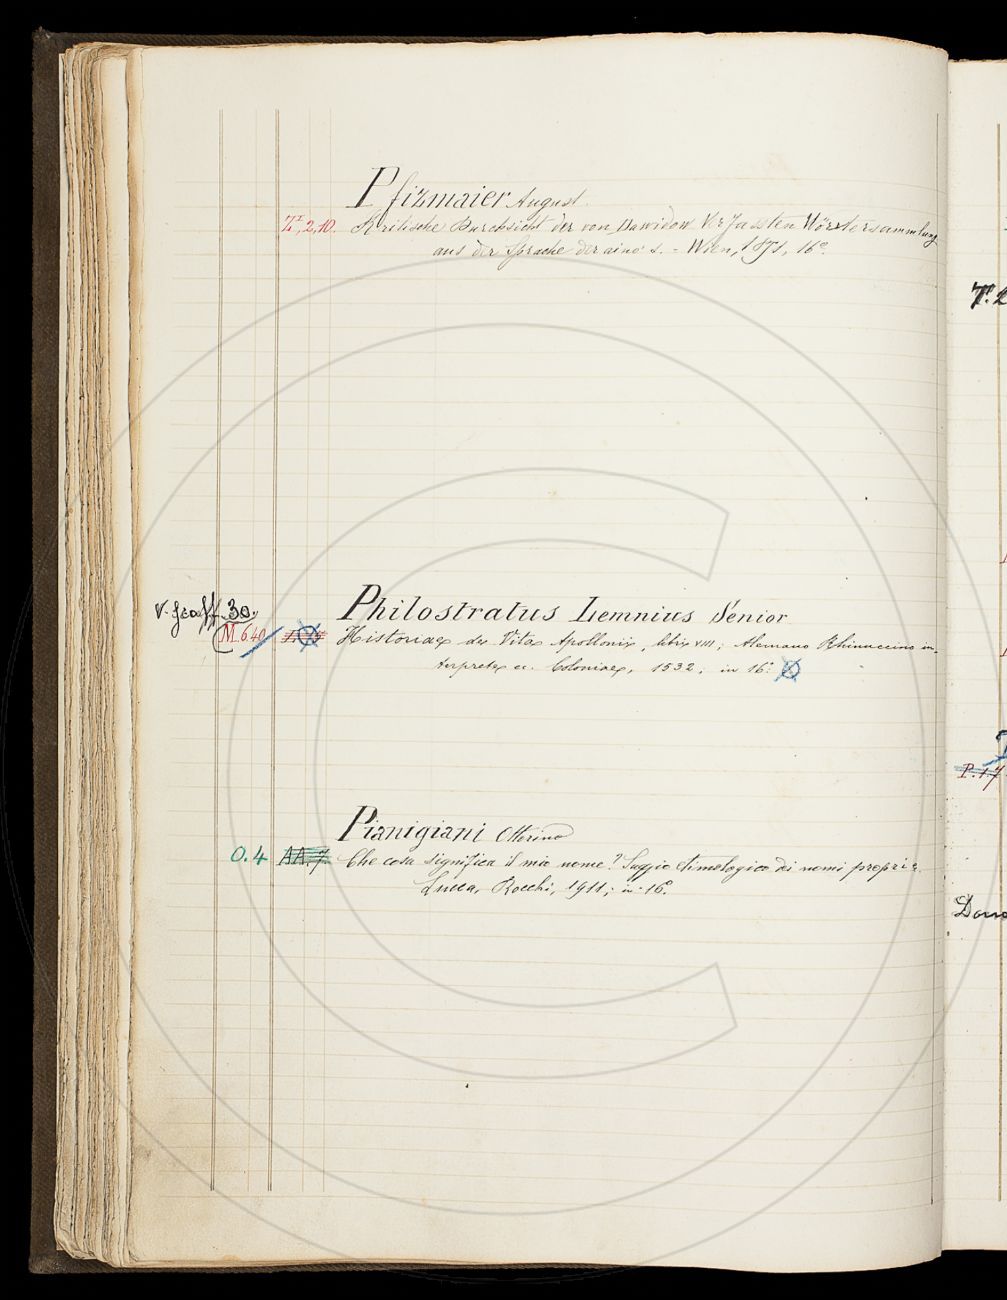 Pfizmaier August.
Z^I, 2, 10. Kritische Durchsicht der von Dawidow Verfassten Wörstersammlung
aus der Sprache der aino's. - Wien, 1851, 16°.
Philostratus Lemnius Senior
V. Scaff. 30.
M. 6.40 Historiae de Vita Apollonii, libri VIII; Alemano Rhinuccino in-
terprete ec. Coloniae, 1532, in 16°.
Pianigiani Ottorino
O. 4 AA. 7. Che cosa significa il mio nome? Saggio etimologico di nomi propri.
Lucca, Rocchi, 1911, in-16°.
P. 17